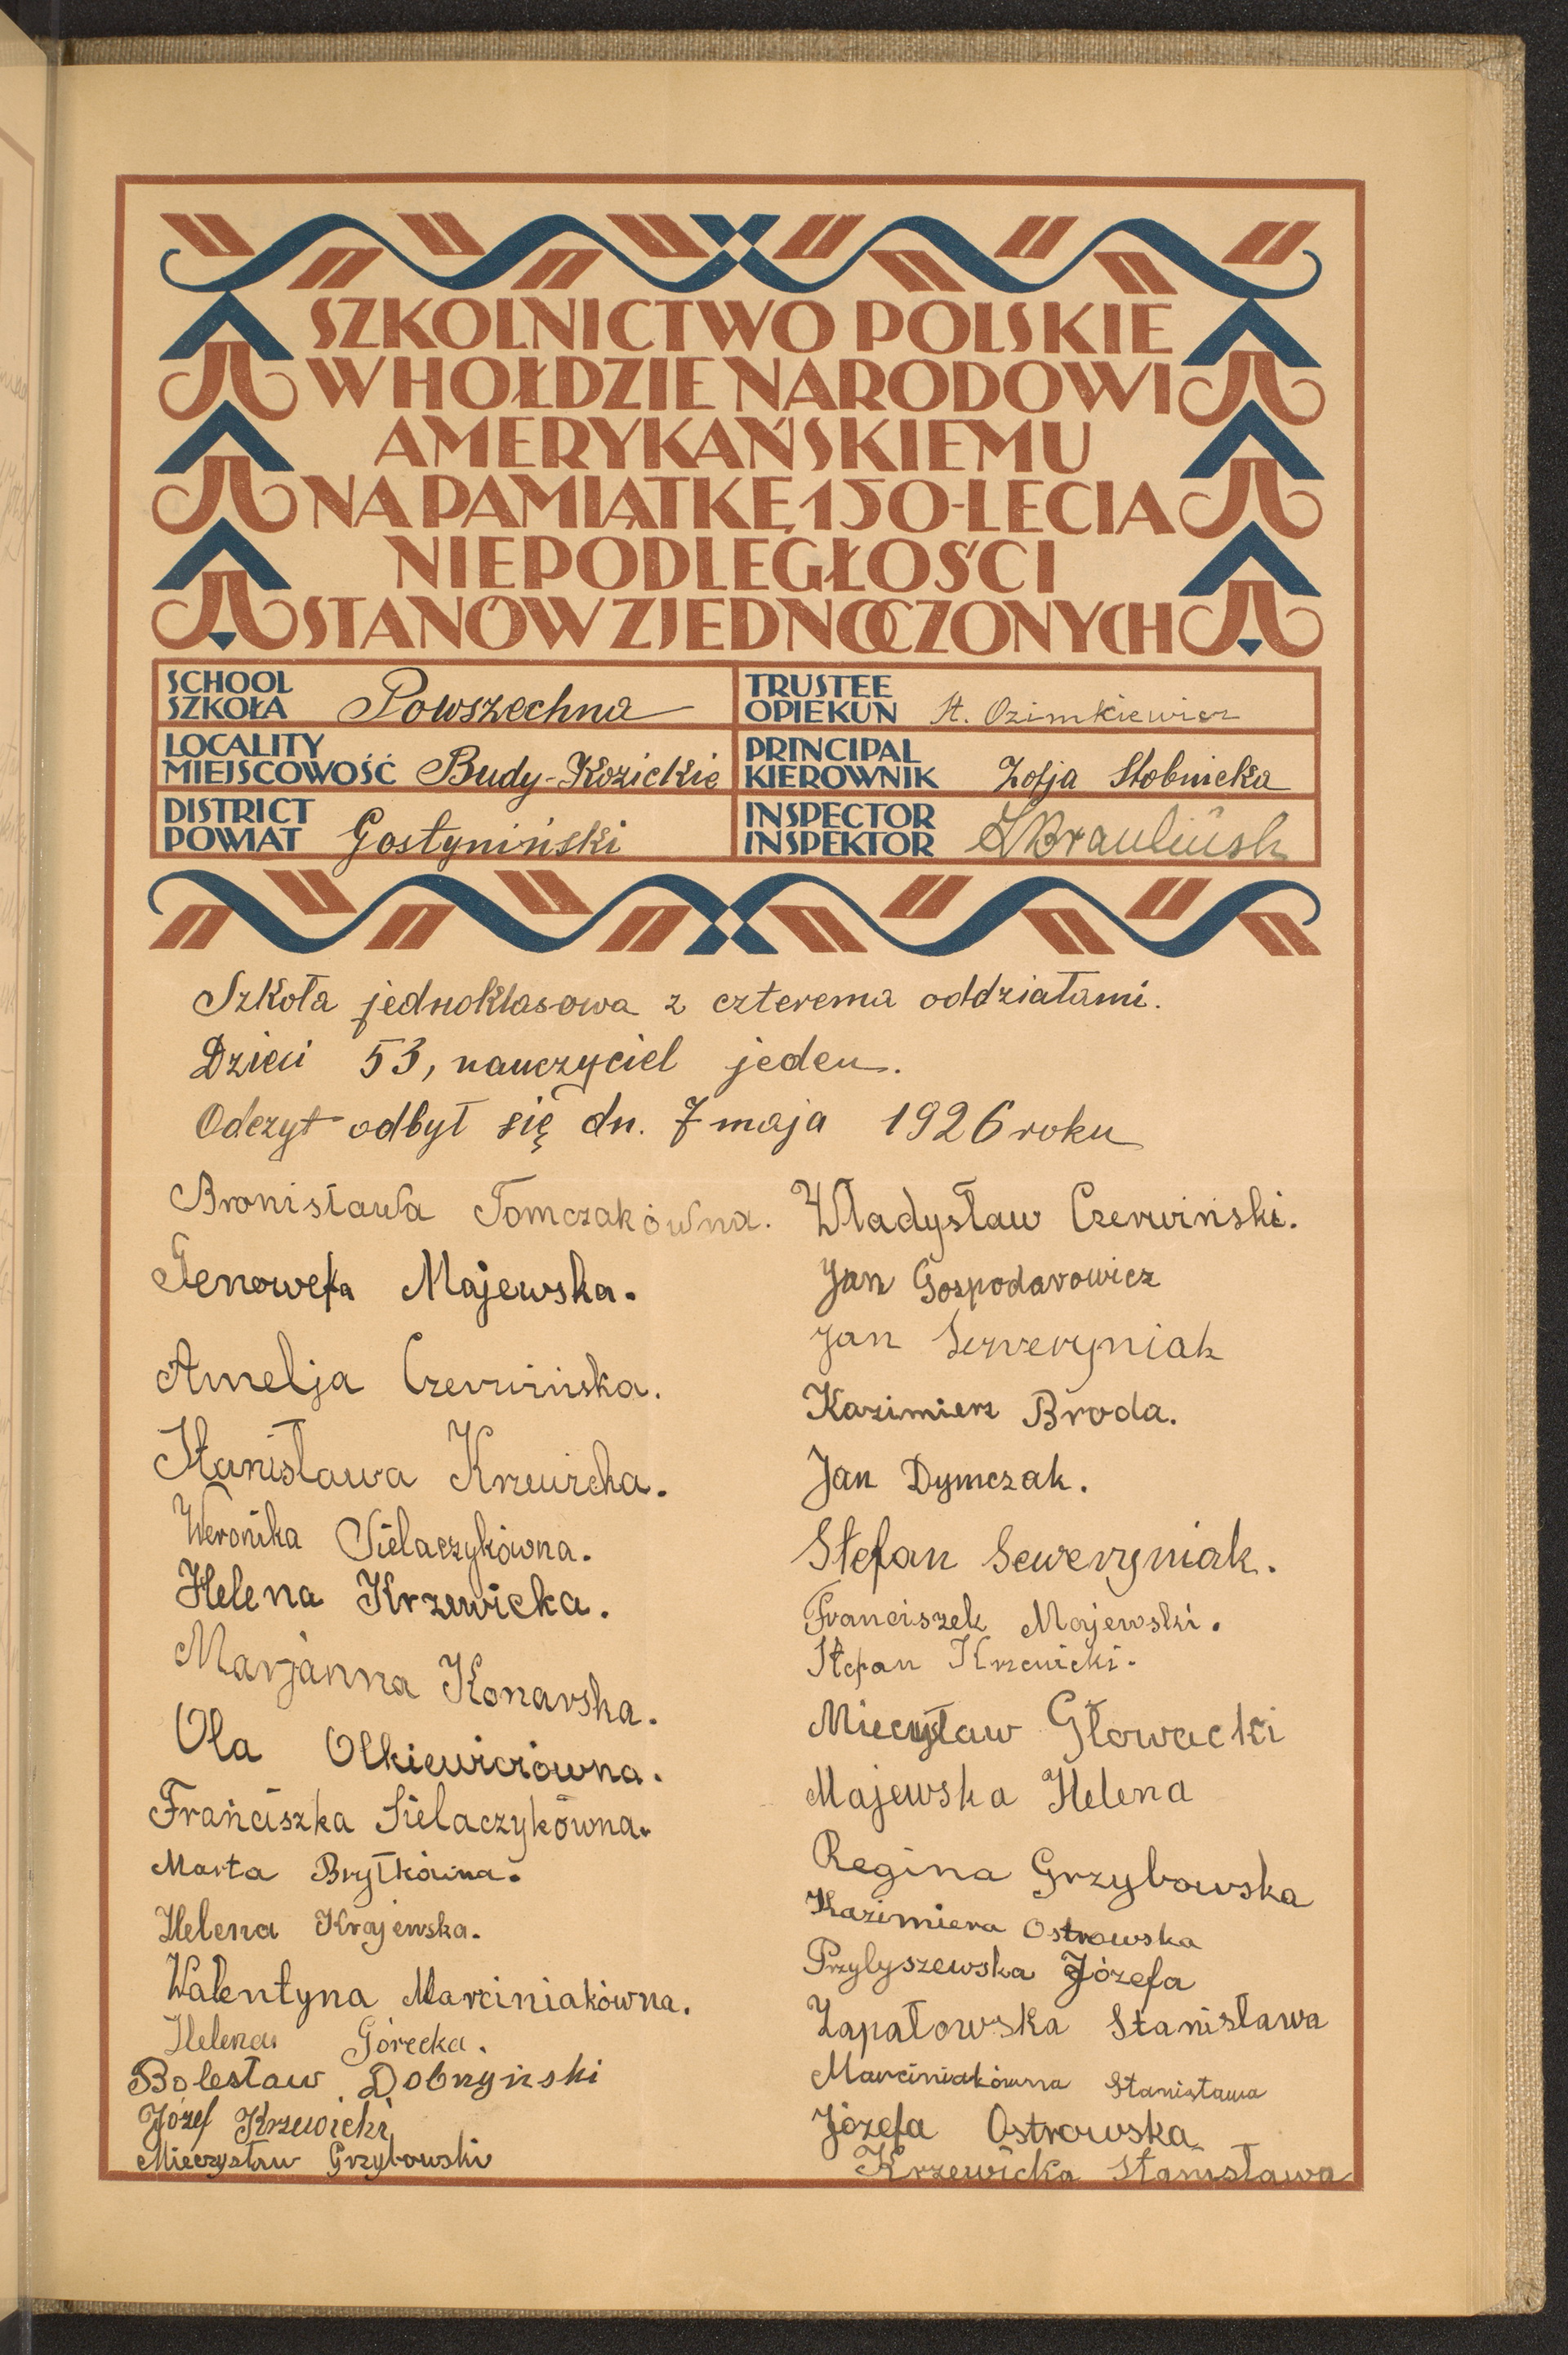 SZKOLNICTWO POLSKIE
W HOŁDZIE NARODOWI
AMERYKAŃSKIEMU
NA PAMIĄTKĘ 150-LECIA
NIEPODLEGŁOŚCI
STANÓW ZJEDNOCZONYCH
SCHOOL
SZKOŁA Powszechna
LOCALITY
MIEJSCOWOŚĆ Budy-Kozickie
DISTRICT
POWIAT Gostyniński
TRUSTEE
OPIEKUN St. Ozimkiewicz
PRINCIPAL
KIEROWNIK Zofja Słobnicka
INSPECTOR
INSPEKTOR
Szkoła jednoklasowa z czterema oddziałami.
Dzieci 53, nauczyciel jeden.
Odczyt odbył się dn. 7 maja 1926 roku
Bronisława Tomczakówna.
Genowefa Majewska.
Amelja Czerwińska.
Stanisława Krzewicka.
Weronika Sielaczykówna.
Helena Krzewicka.
Marjanna Konarska.
Ola Olkiewiczówna.
Franciszka Sielaczykówna.
Marta Bryłkówna.
Helena Krajewska.
Walentyna Marciniakówna.
Helena Górecka.
Bolesław Dobrzyński
Józef Krzewicki
Mieczysław Grzybowski
Władysław Czerwiński.
Jan Gospodarowicz
Jan Seweryniak
Kazimierz Broda.
Jan Dymczak.
Stefan Seweryniak.
Franciszek Majewski.
Stefan Krzewicki.
Mieczysław Głowacki
Majewska Helena
Regina Grzybowska
Kazimiera Ostrowska
Przybyszewska Józefa
Zapałowska Stanisława
Marciniakówna Stanisława
Józefa Ostrowska
Krzewicka Stanisława